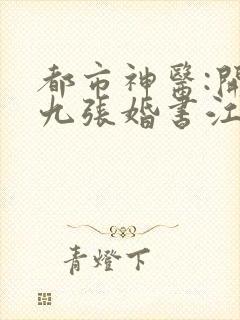 都市神醫:開
九張婚書江
青燈下